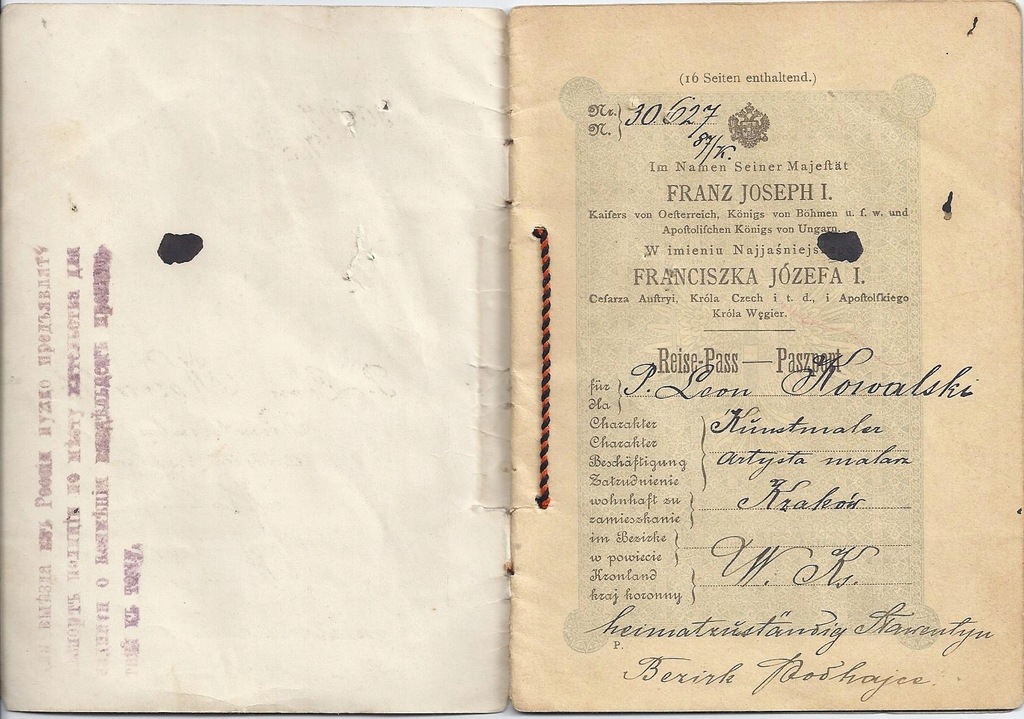 выѣзда изъ Россіи нужно предъявлять
полиціи по мѣсту жительства для
о
къ тому
(16 Seiten enthaltend.)
Nr. 30627
N. 87/K.
Im Namen Seiner Majeſtät
FRANZ JOSEPH I.
Kaiſers von Oeſterreich, Königs von Böhmen u. ſ. w. und
Apoſtoliſchen Königs von Ungarn.
W imieniu Najjaśniejs
FRANCISZKA JÓZEFA I.
Ceſarza Auſtryi, Króla Czech i t. d., i Apoſtolſkiego
Króla Węgier.
Reise-Pass — Paszport
für
dla
P. Leon Kowalski
Charakter
Charakter
Kunstmaler
Beschäftigung
Zatrudnienie
Artysta malarz
wohnhaft zu
zamieszkanie
Kraków
im Bezirke
w powiecie
Kronland
kraj koronny
W. Ks.
heimatzuständig Stawentyn
P.
Bezirk Podhajce.